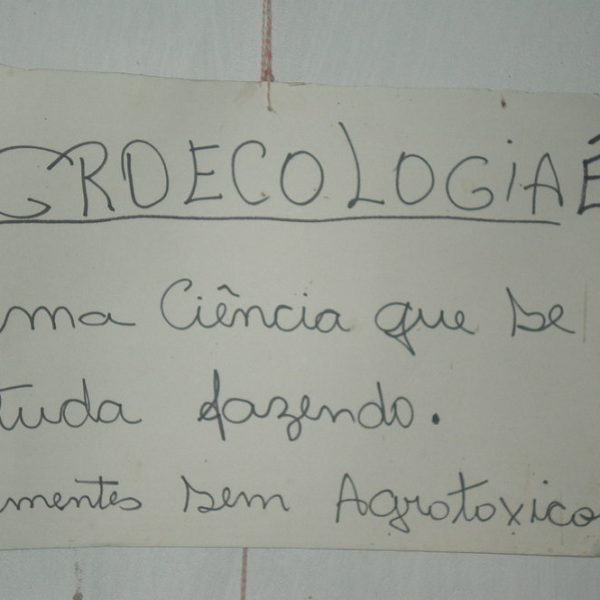 GROECOLOGIA É
ma Ciência que se
tuda fazendo.
mentos sem Agrotoxico